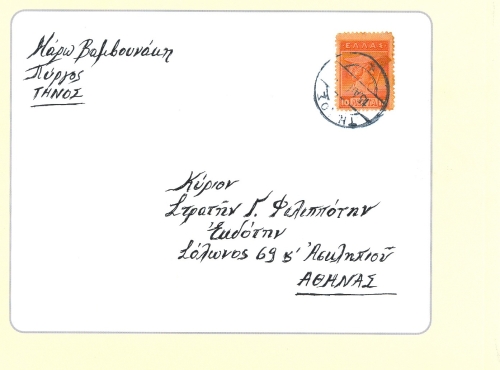 Μάρω Βαμβουνάκη
Πύργος
ΤΗΝΟΣ
ΕΛΛΑΣ
10
ΤΗΝΟΣ
Κύριον
Στρατῆν Γ. Φιλιππότην
Ἐκδότην
Σόλωνος 69 κ' Ἀσκληπιοῦ
ΑΘΗΝΑΣ